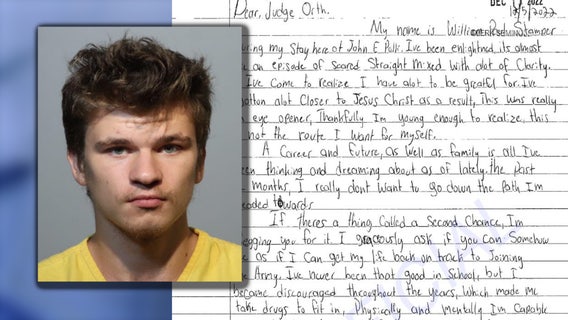 DEC 2022
Dear, Judge Orth. 10/5/2022
My name is William
during my stay here at John E Polk. Ive been enlightned, its almost
an episode of scared Straight mixed with alot of Clarity.
Ive Come to realize I have alot to be greatful for. Ive
alot Closer to Jesus Christ as a result, This was really
eye opener, Thankfully Im young enough to realize, this
not the route I want for myself.
A Career and future, as well as family is all Ive
been thinking and dreaming about as of lately. the past
months, I really dont want to go down the Path Im
headed towards
If theres a thing Called a Second Chance, Im
begging you for it. I graceously ask if you Can Somehow
as if I Can get my life back on track to Joining
Army. Ive never been that good in School, but I
became discouraged throughout the years, which made me
take drugs to fit in, Physically and mentally Im Capable